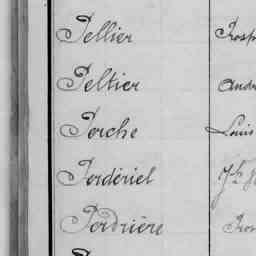 Pellier Prosp
Peltier André
Perche Louis
Perdériel Jh
Perdrière